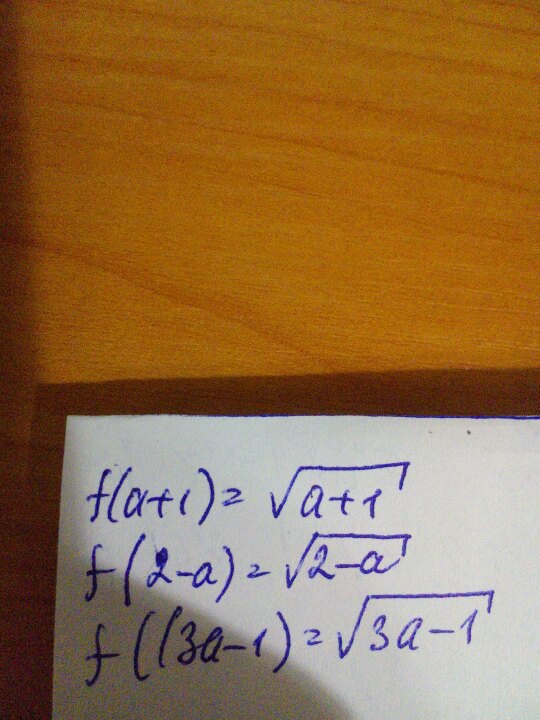 f(a+1) = √a+1
f(2-a) = √2-a
f((3a-1) = √3a-1